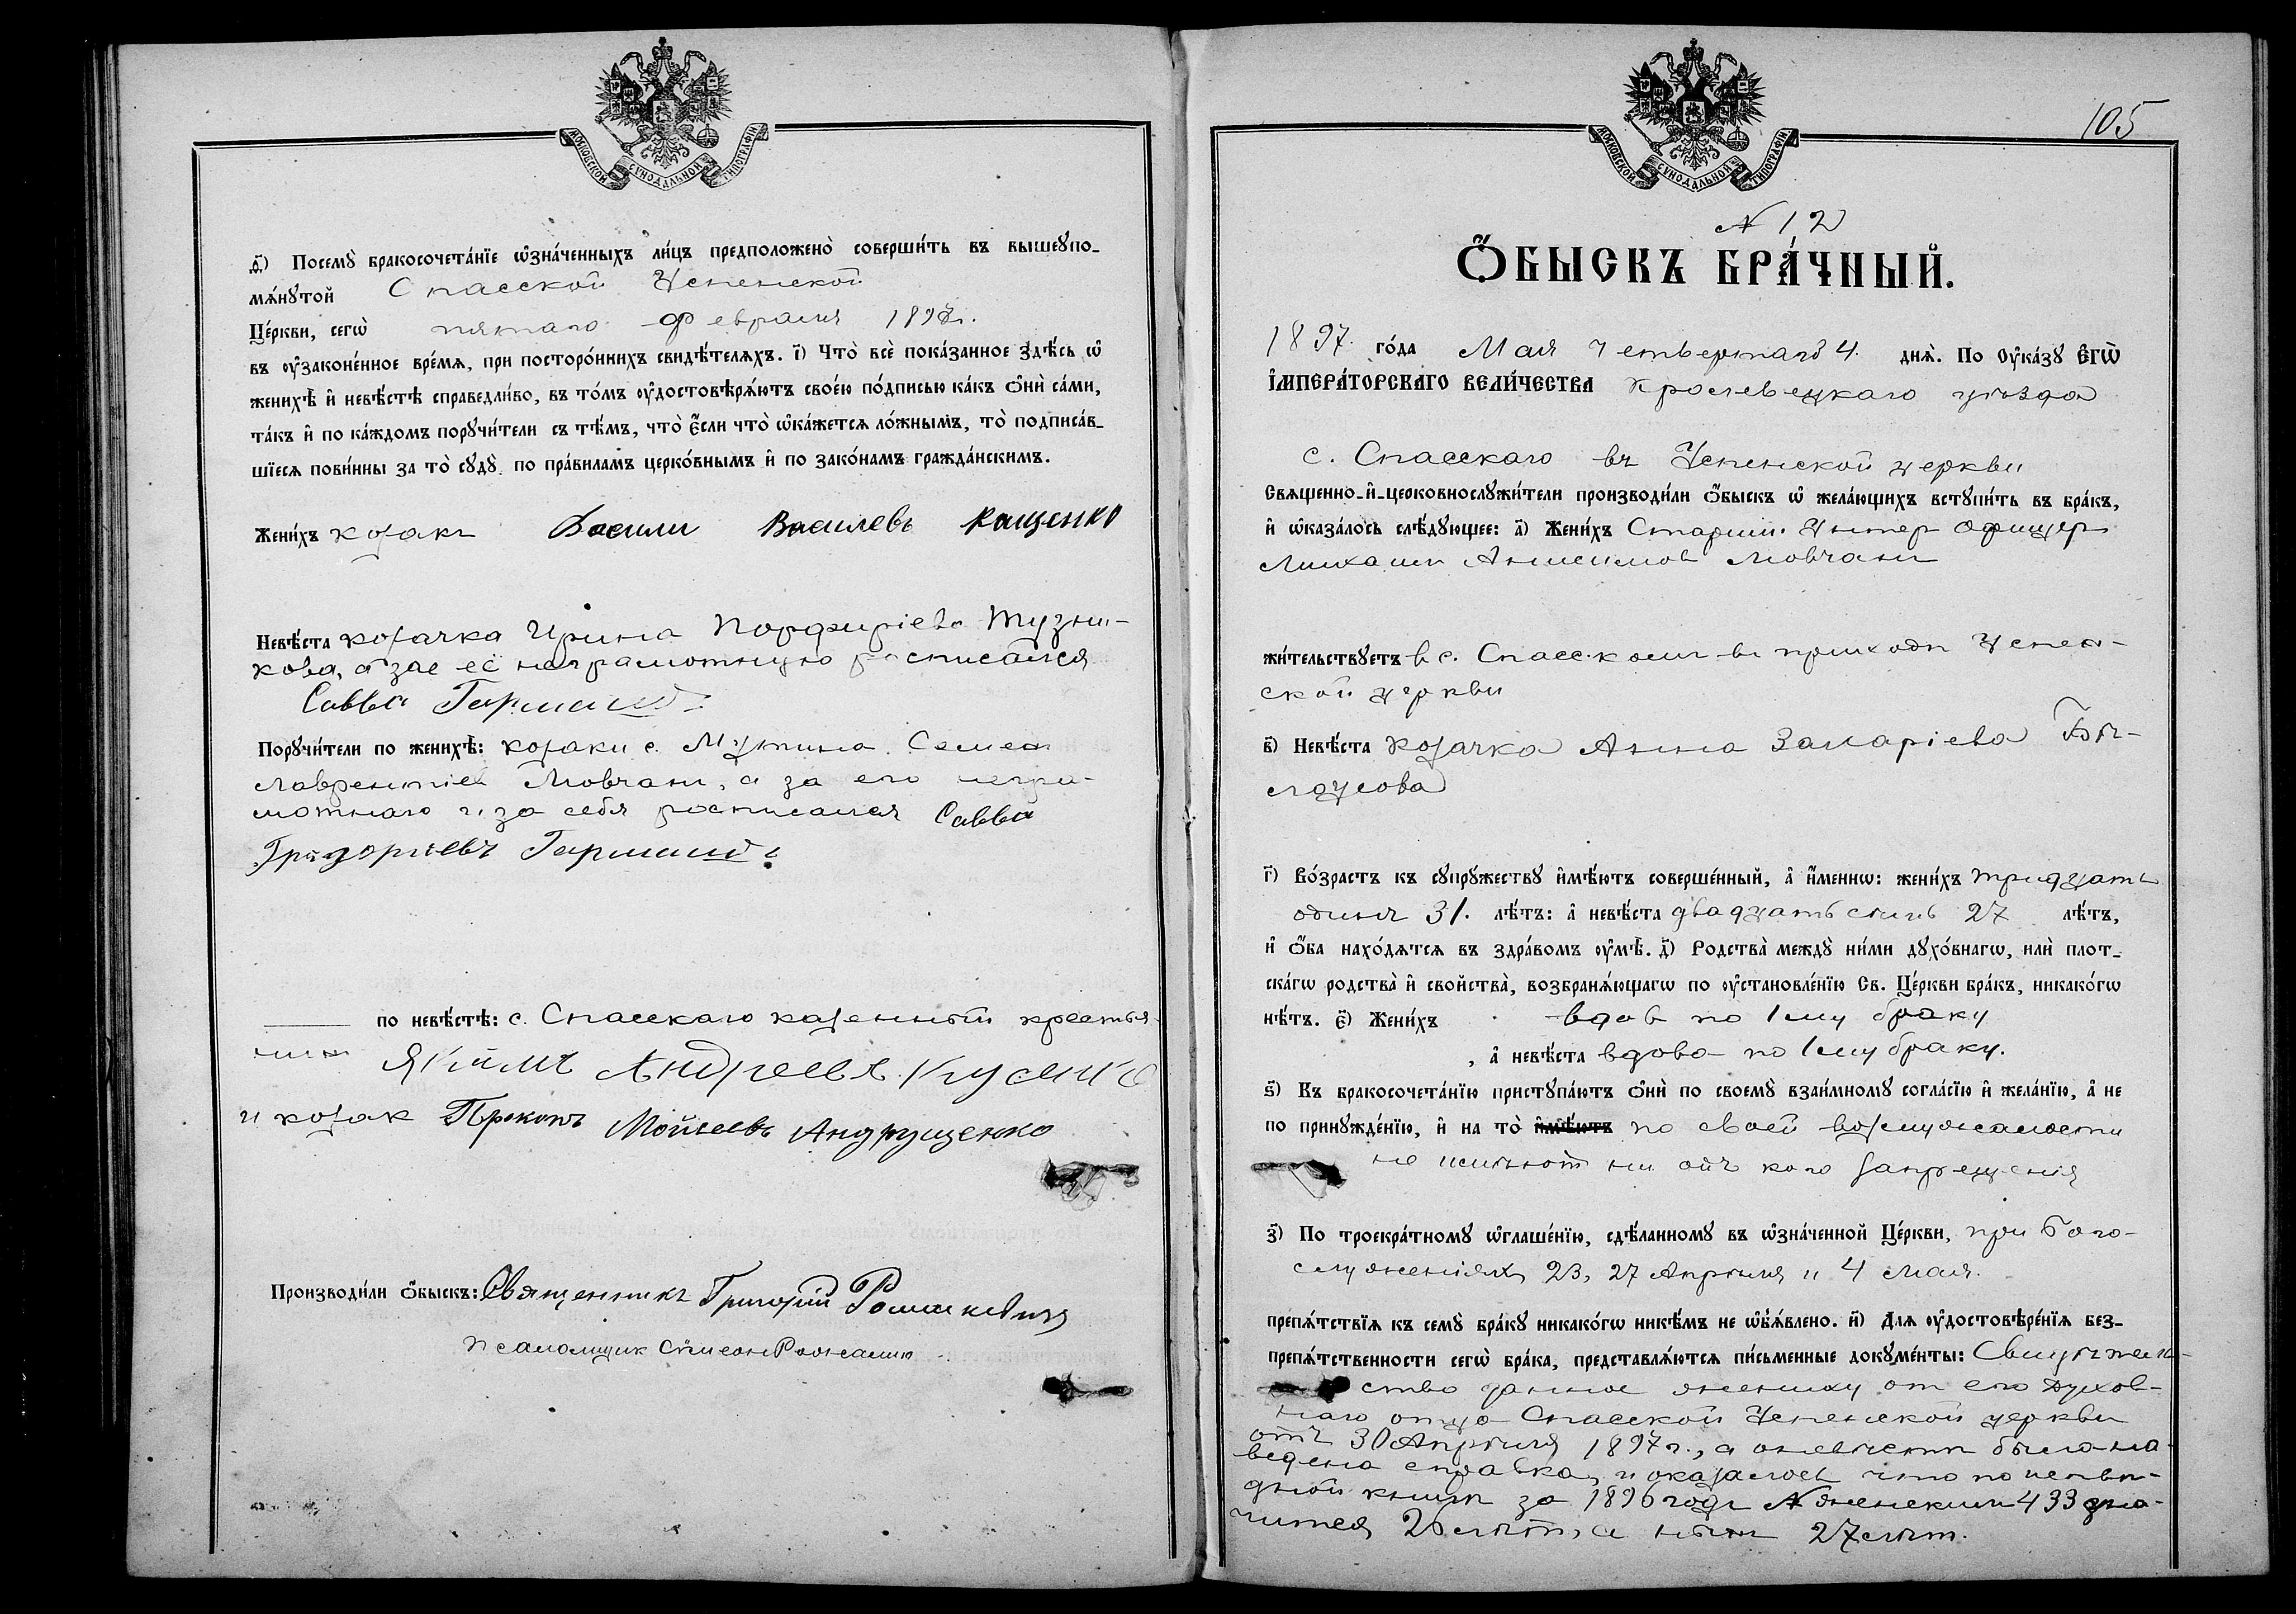 МОСКОВСКОЙ СѴНОДАЛЬНОЙ ТИПОГРАФІИ
ѳ҃) Посемꙋ̀ бракосочета́нїе ѡ҆зна́ченныхъ ли́цъ предположено̀ соверши́ть въ вышеꙋпо-
мѧ́нꙋтой Спасской Успенской
Це́ркви, сегѡ̀ пятаго февраля 1897 г.
въ ᲂу҆зако́ненное вре́мѧ, при посторо́ннихъ свидѣ́телѧхъ. і҃) Что̀ всѐ пока́занное здѣ́сь ѡ҆
женихѣ̀ и҆ невѣ́стѣ справедли́во, въ то́мъ ᲂу҆достовѣрѧ́ютъ свое́ю по́дписью ка́къ ѻ҆нѝ са́ми,
та́къ и҆ по ка́ждомъ порꙋчи́тели съ тѣ́мъ, что̀ є҆́сли что̀ ѡ҆ка́жетсѧ ло́жнымъ, то̀ подписа́в-
шїесѧ пови́нны за то̀ сꙋдꙋ̀ по пра́виламъ церко́внымъ и҆ по зако́намъ гражда́нскимъ.
Жени́хъ козакъ Васили Василевь Кащенко
Невѣ́ста козачка Ирина Порфиріева Тузни-
кова, а зае её неграмотную росписался
Савва Гармаш
Порꙋчи́тели по женихѣ̀: козаки с. Мутина Семен
Лаврентіев Мовчан, а за его негра-
мотнаго и за себя росписался Савва
Григоріевъ Гармаш
по невѣ́стѣ: с. Спасскаго казенный крестья-
нин Якимъ Андреевъ
и козак Прокопъ Мойсеевъ Андрущенко
Производи́ли ѻ҆́быскъ: Священникъ Григорій
Псаломщик Симеон
МОСКОВСКОЙ СѴНОДАЛЬНОЙ ТИПОГРАФІИ
105
N 12
Ѻ҆́БЫСКЪ БРА́ЧНЫЙ.
1897 го́да Мая четвертаго 4. днѧ̀. По Оу҆ка́зꙋ Є҆ГѠ̀
І҆МПЕРА́ТОРСКАГО ВЕЛИ́ЧЕСТВА Кролевецкаго уѣзда
с. Спасскаго въ Успенской церкви
Свѧщенно-и҆-церковнослꙋжи́тели производи́ли ѻ҆́быскъ ѡ҆ жела́ющихъ встꙋпи́ть въ бра́къ,
и҆ ѡ҆каза́лось слѣ́дꙋющее: а҃) Жени́хъ Старший Унтер офицер
Михаил Анисимов Мовчан
жи́тельствꙋетъ в с. Спасском въ приходѣ Успен-
ской церкви
в҃) Невѣ́ста козачка Анна Захаріева Бѣ-
лоусова
г҃) Во́зрастъ къ сꙋпрꙋ́жествꙋ и҆мѣ́ютъ соверше́нный, а҆ и҆́меннѡ: жени́хъ тридцать
одинъ 31. лѣ́тъ: а҆ невѣ́ста двадцать семь 27 лѣ́тъ,
и҆ ѻ҆́ба нахо́дѧтсѧ въ здра́вомъ ᲂу҆мѣ̀. д҃) Родства̀ междꙋ̀ ни́ми дꙋхо́внагѡ, илѝ плот-
ска́гѡ родства̀ и҆ свойства̀, возбранѧ́ющагѡ по ᲂу҆становле́нїю Св. Це́ркви бра́къ, никако́гѡ
нѣ́тъ. є҃) Жени́хъ вдов по 1му браку
, а҆ невѣ́ста вдова по 1му браку.
ѕ҃) Къ бракосочета́нїю пристꙋпа́ютъ ѻ҆нѝ по своемꙋ̀ взаи́мномꙋ согла́сїю и҆ жела́нїю, а҆ не
по принꙋжде́нїю, и҆ на то̀ и҆мѣ́ютъ по своей возмужалости
не имѣют ни отъ кого запрещенія
з҃) По троекра́тномꙋ ѡ҆глаше́нїю, сдѣ́ланномꙋ въ ѡ҆зна́ченной Це́ркви, при Бого-
служеніях 23, 27 Апрѣля и 4 мая.
препѧ́тствїѧ къ семꙋ̀ бра́кꙋ никако́гѡ никѣ́мъ не ѡ҆б̾ѧ́влено. и҃) Длѧ ᲂу҆достовѣре́нїѧ без-
препѧ́тственности сегѡ̀ бра́ка, представлѧ́ютсѧ пи́сьменные докꙋме́нты: Свидѣтель-
ство данное жениху от его духов-
наго отца Спасской Успенской церкви
отъ 30 Апрѣля 1897 г., а о невѣсте было на-
ведена справка, и оказалось что по исповѣ-
дной книге за 1896 годъ N женским 433 зна-
чится 26 лѣт, а нынѣ 27 лѣт.